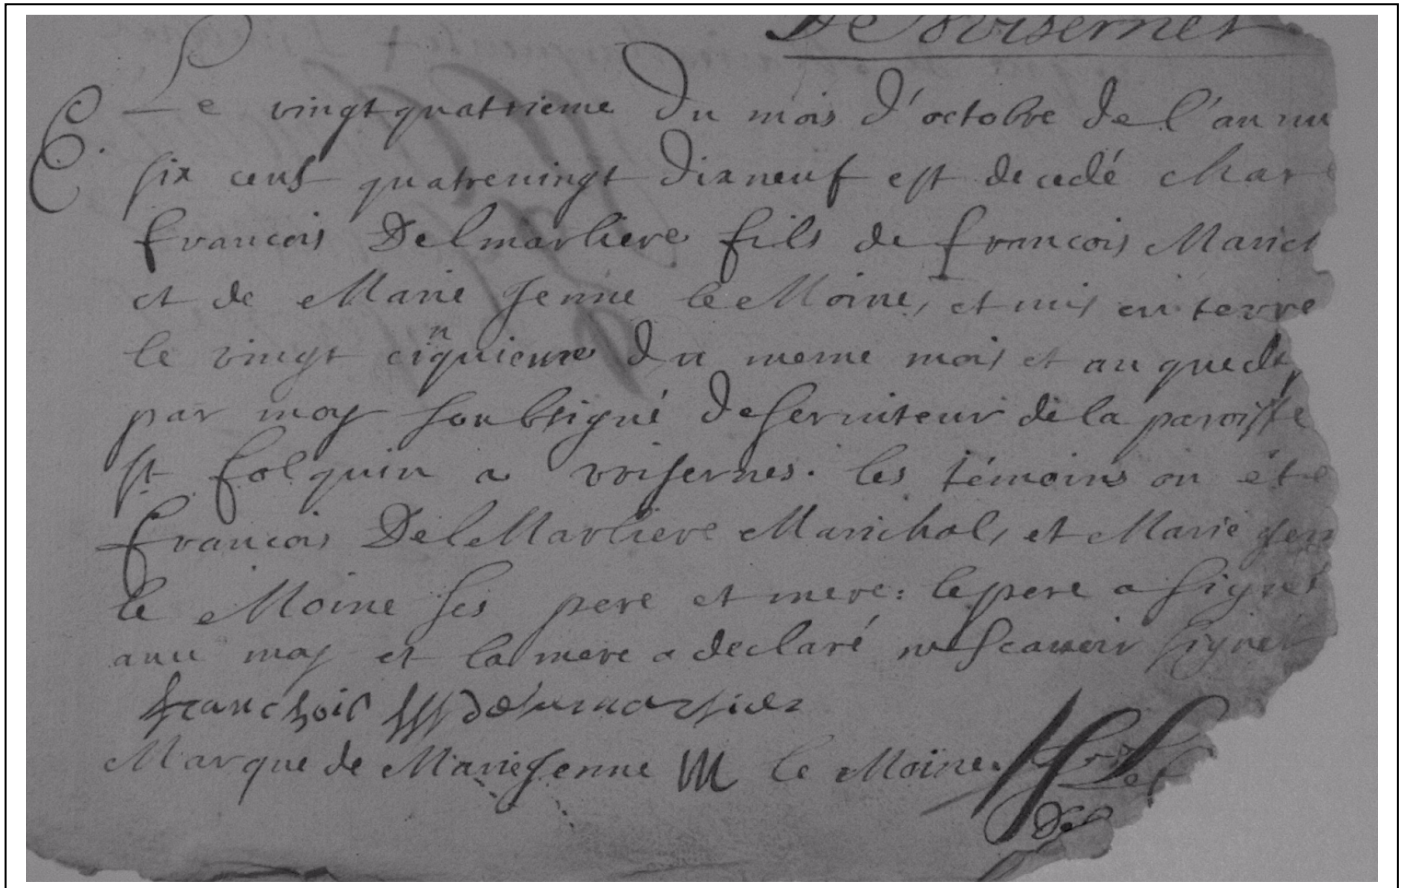 De Voisernes
Le vingtquatrieme Du mois d'octobre de l'an mi
six cens quatrevingt dixneuf est decedé Char
francois Delmarliere fils de francois Marich
et de Marie Jenne le Moine, et mis en terre
le vingt cinquieme du meme mois et an que dt,
par moy soubsigné deserviteur de la paroisse
st folquin a voisernes. les témoins on été
francois DelMarliere Marichal, et Marie Jen
le Moine ses pere et mere: le pere a signé
avec moy et la mere a declaré ne scavoir signer
franchois delamarlier
Marque de Marie Jenne M le Moine.